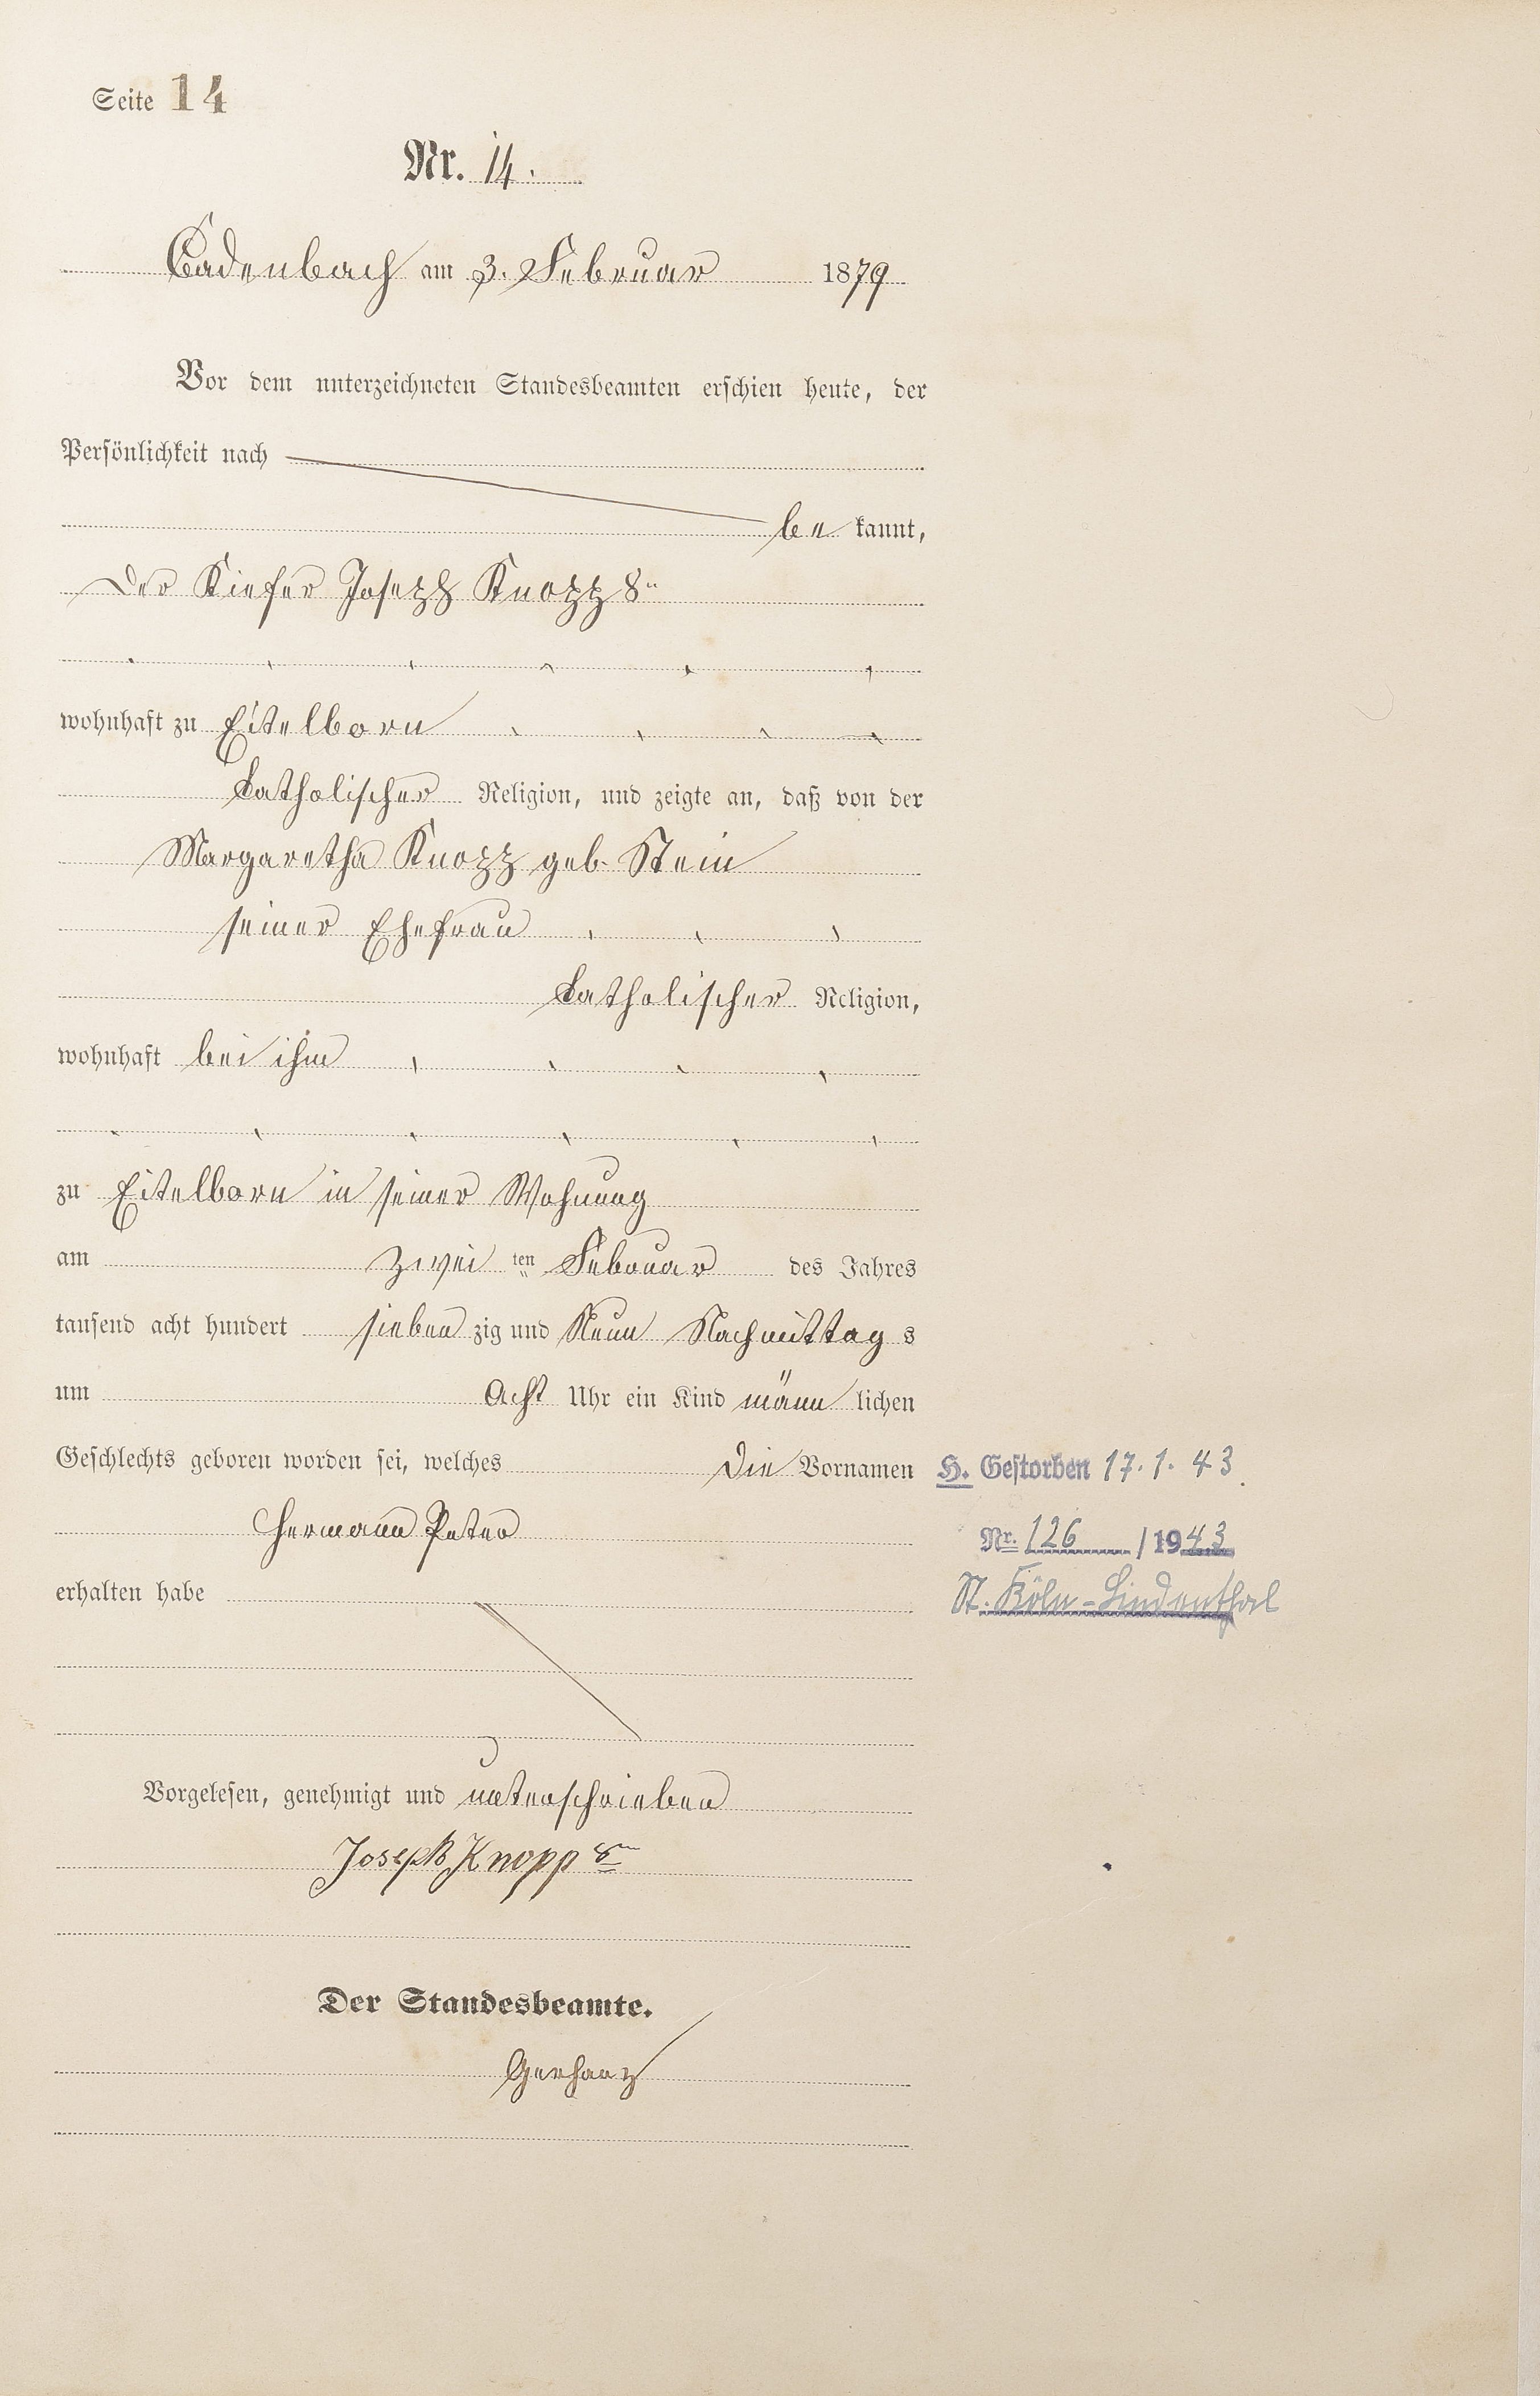 Seite 14
Nr. 14.
Cadenbach am 3. Februar 1879
Vor dem unterzeichneten Standesbeamten erschien heute, der
Persönlichkeit nach
be kannt,
Der Kiefer Joseph Knopp 8n
wohnhaft zu Eitelborn
Catholischer Religion, und zeigte an, daß von der
Margaretha Knopp geb. Stein
seiner Ehefrau
Catholischer Religion,
wohnhaft bei ihm
zu Eitelborn in seiner Wohnung
am zwei ten Februar des Jahres
tausend acht hundert sieben zig und Neun Nachmittag s
um Acht Uhr ein Kind männ lichen
Geschlechts geboren worden sei, welches die Vornamen
Hermann Peter
erhalten habe
H. Gestorben 17.1.43.
Nr. 126 / 1943
St. Köln-Lindenthal
Vorgelesen, genehmigt und unterschrieben
Joseph Knopp 8n
Der Standesbeamte.
Gerharz